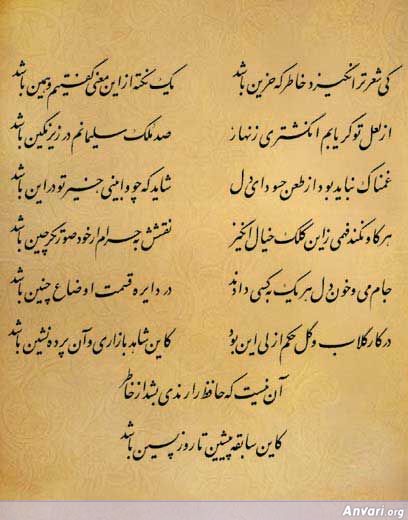 کی شعر تر انگیزد خاطر که حزین باشد یک نکته از این معنی گفتیم و همین باشد
از لعل تو گر یابم انگشتری زنهار صد ملک سلیمانم در زیر نگین باشد
غمناک نباید بود از طعن حسود ای دل شاید که چو وابینی خیر تو در این باشد
هر کاو نکند فهمی زاین کلک خیال انگیز نقشش به حرام ار خود صورتگر چین باشد
جام می و خون دل هر یک به کسی دادند در دایره قسمت اوضاع چنین باشد
در کار گلاب و گل حکم ازلی این بود کاین شاهد بازاری وآن پرده نشین باشد
آن نیست که حافظ را رندی بشد از خاطر
کاین سابقه پیشین تا روز پسین باشد
Anvari.org